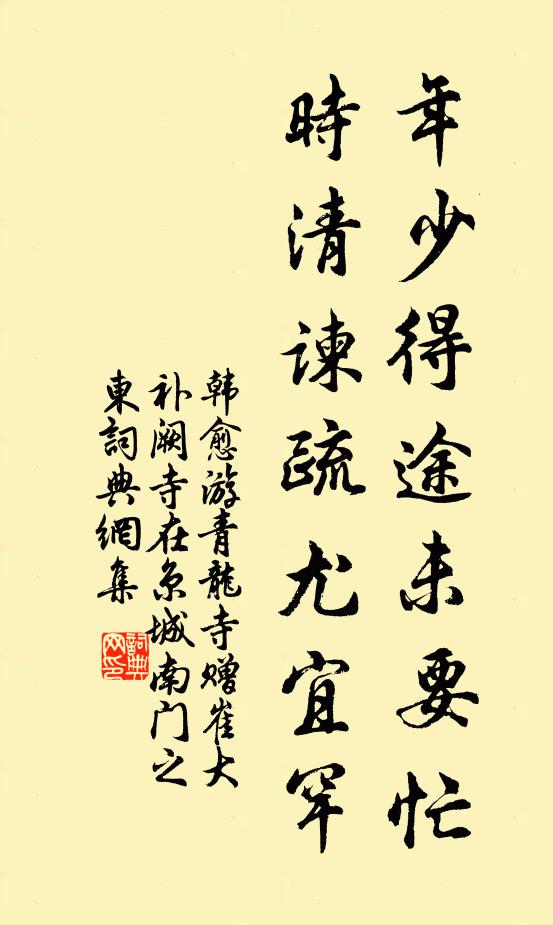 年少得途未要忙
時清諫疏尤宜罕
韩愈游青龍寺赠崔大
补阙寺在京城南门之
東詞典網集
詞典
网印